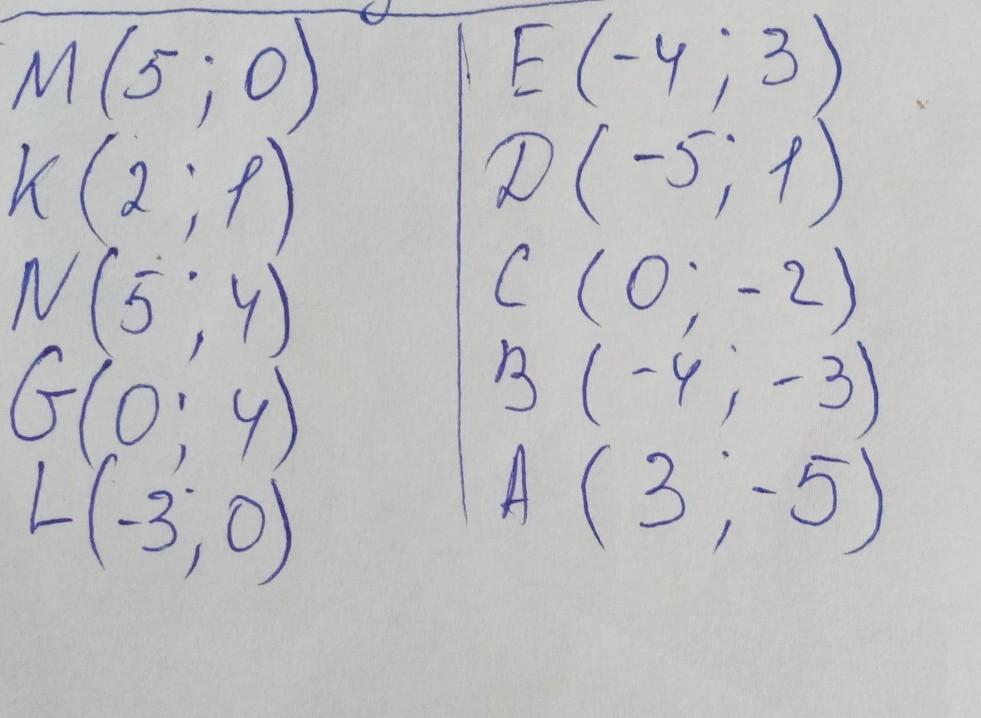 M(5; 0)
K(2; 1)
N(5; 4)
G(0; 4)
L(-3; 0)
E(-4; 3)
D(-5; 1)
C(0; -2)
B(-4; -3)
A(3; -5)